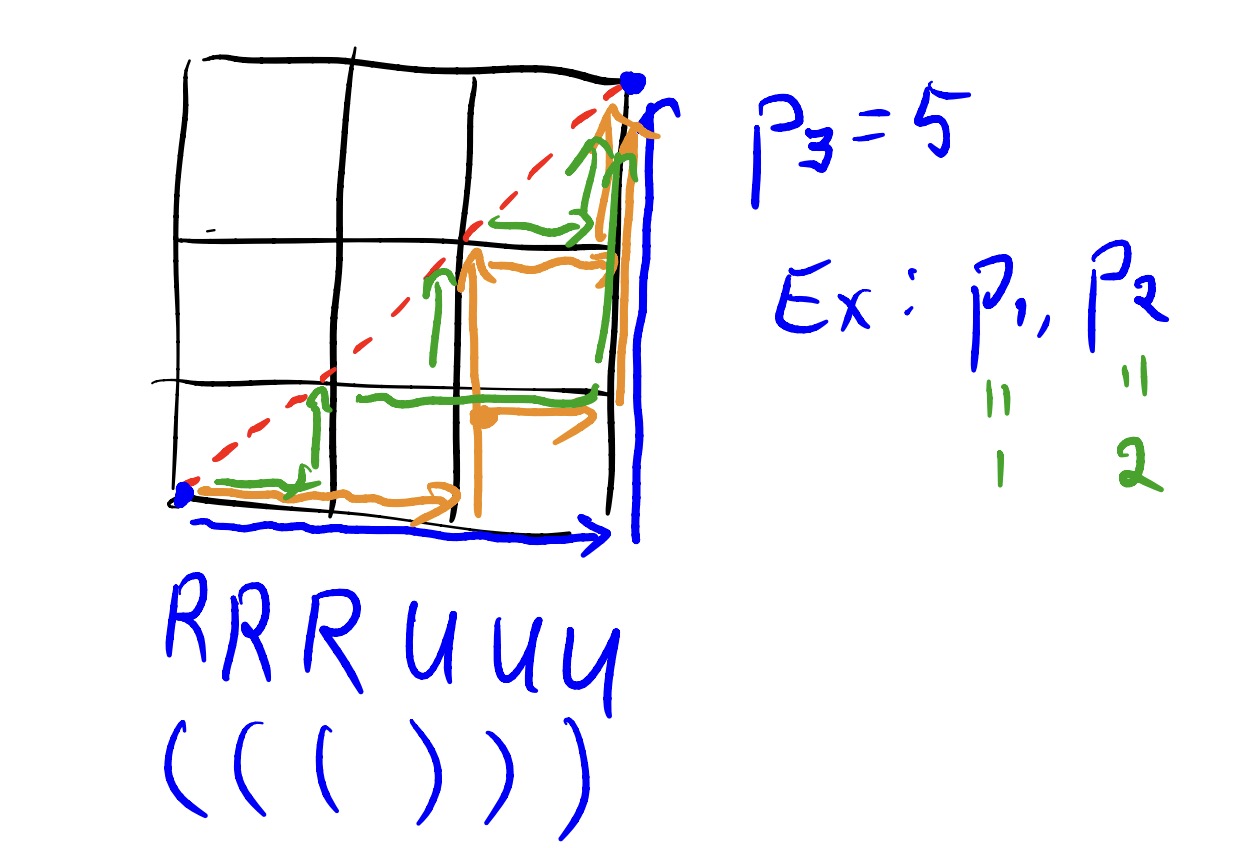 p₃ = 5
Ex: p₁, p₂
" "
1 2
R R R U U U
( ( ( ) ) )